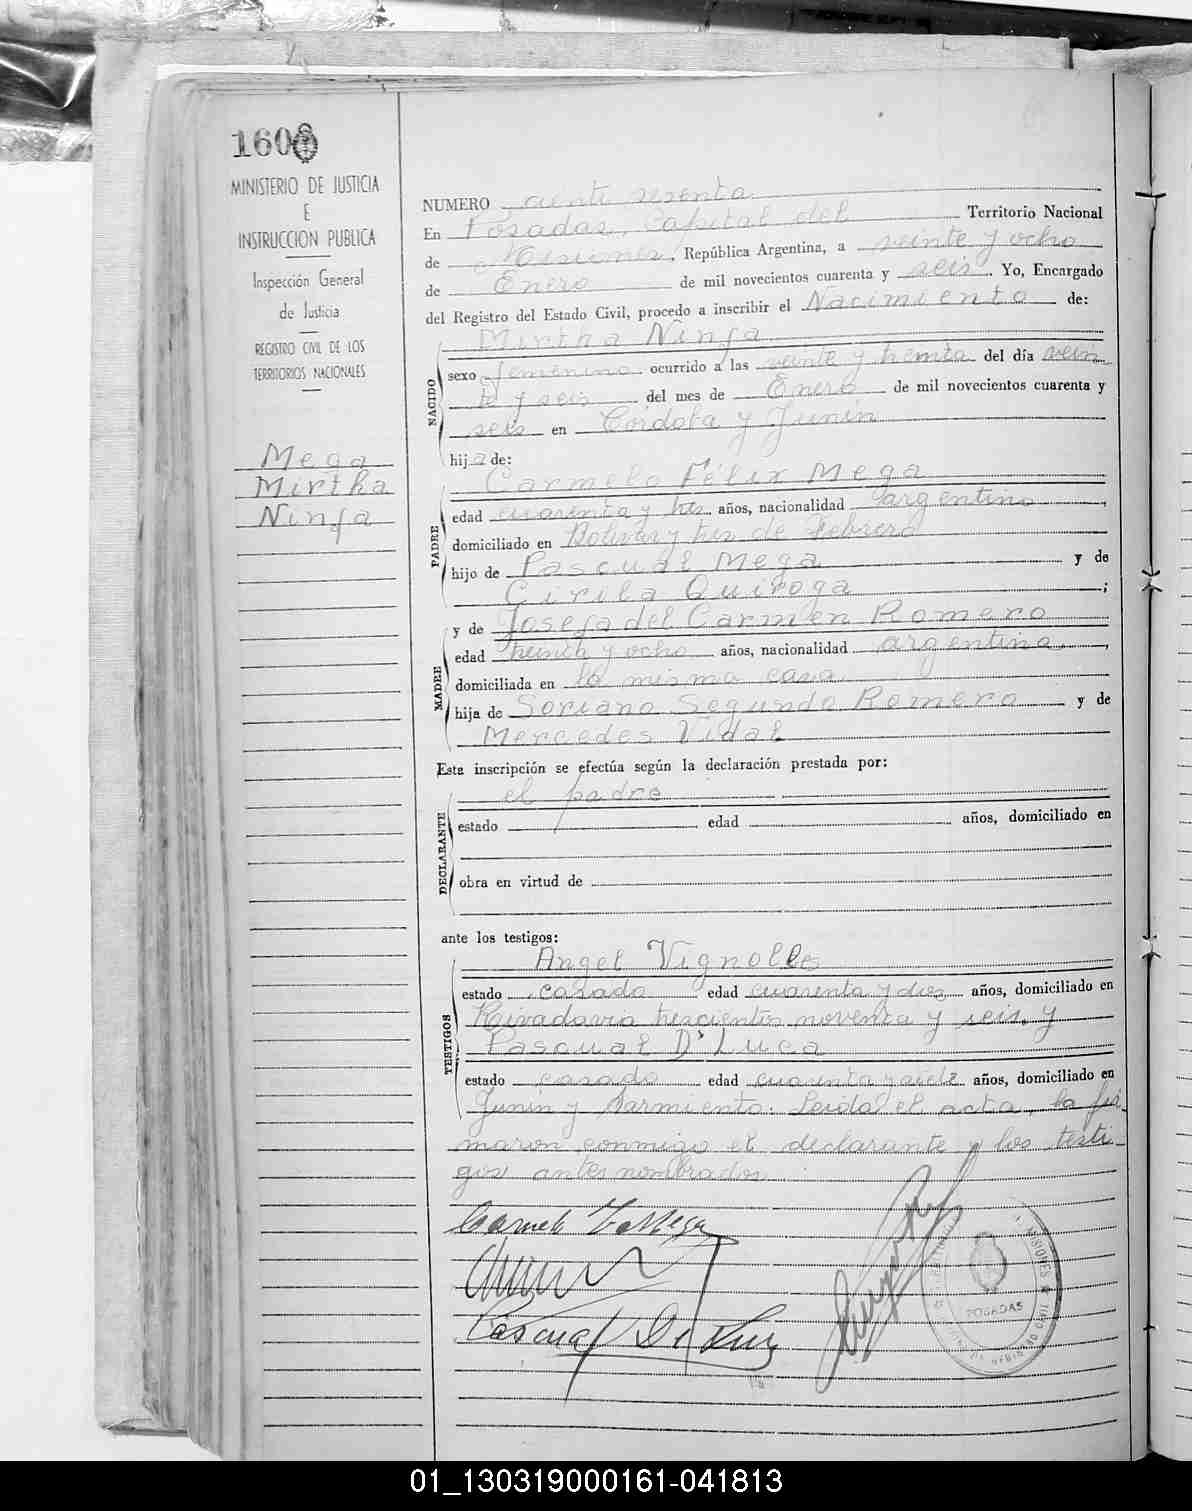 160
MINISTERIO DE JUSTICIA
E
INSTRUCCION PUBLICA
Inspección General
de Justicia
REGISTRO CIVIL DE LOS
TERRITORIOS NACIONALES
Mega
Mirtha
Ninfa
NUMERO ciento sesenta
En Posadas, Capital del Territorio Nacional
de Misiones, República Argentina, a veinte y ocho
de Enero de mil novecientos cuarenta y seis. Yo, Encargado
del Registro del Estado Civil, procedo a inscribir el Nacimiento de:
NACIDO
Mirtha Ninfa
sexo femenino ocurrido a las veinte y treinta del día vein
te y seis del mes de Enero de mil novecientos cuarenta y
seis en Córdoba y Junín
hija de:
PADRE
Carmelo Félix Mega
edad cuarenta y tres años, nacionalidad argentino,
domiciliado en Bolivar y tres de Febrero
hijo de Pascual Mega y de
Cirila Quiroga;
y de Josefa del Carmen Romero
MADRE
edad treinta y ocho años, nacionalidad argentina,
domiciliada en la misma casa
hija de Soriano Segundo Romero y de
Mercedes Vidal
Esta inscripción se efectúa según la declaración prestada por:
DECLARANTE
el padre
estado edad años, domiciliado en
obra en virtud de
ante los testigos:
TESTIGOS
Angel Vignolles
estado casado edad cuarenta y dos años, domiciliado en
Rivadavia trescientos noventa y seis, y
Pascual D'Luca
estado casado edad cuarenta y siete años, domiciliado en
Junín y Sarmiento. Leída el acta, la fir
maron conmigo el declarante y los testi-
gos antes nombrados
POSADAS
MISIONES
01_130319000161-041813